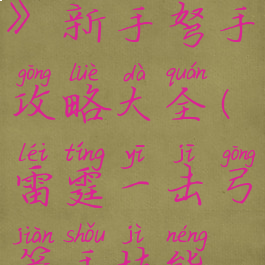 》新手弩手
gōng lüè dà quán
攻略大全(
léi tíng yī jī gōng
雷霆一击弓
jiàn shǒu jì néng
箭手技能